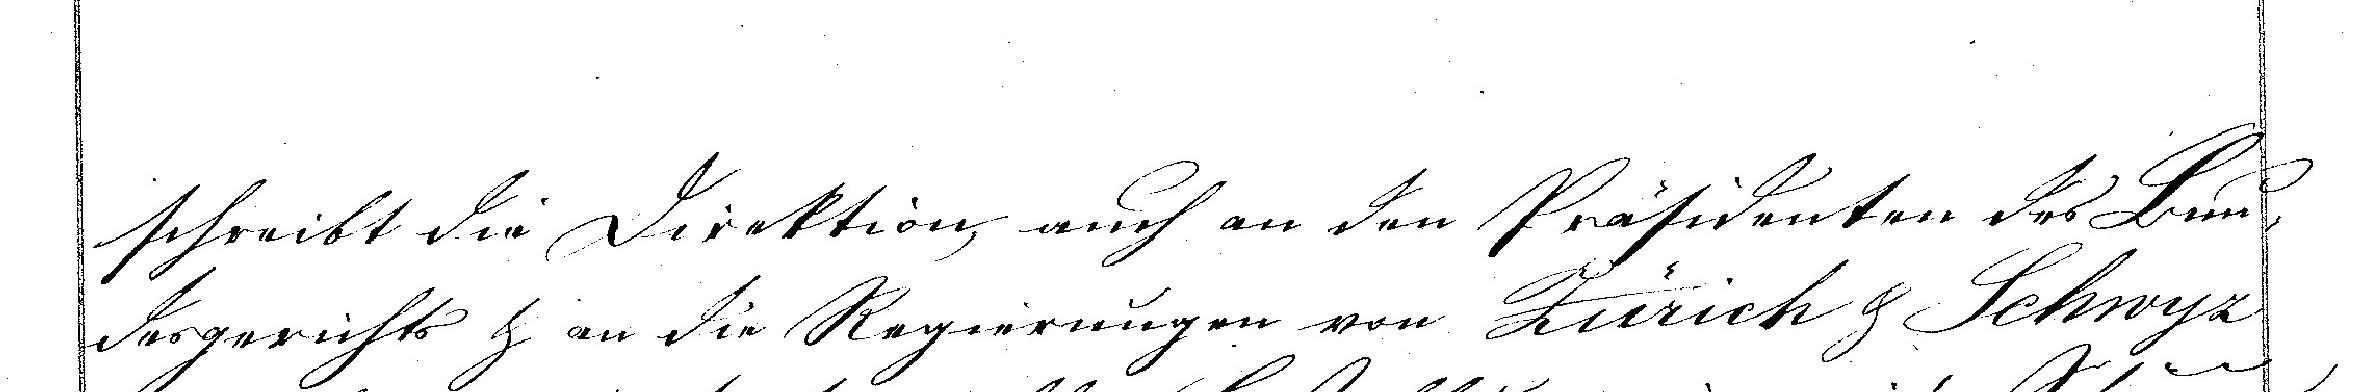 schreibt die Direktion, auch an den Präsidenten des Bun-
desgerichts & an die Regierungen von Zürich & Schwyz